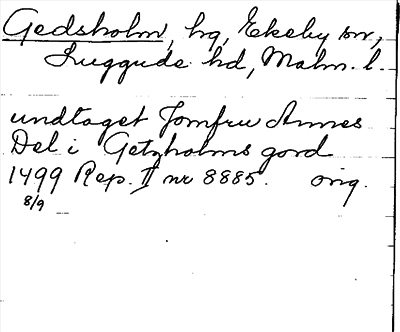 Gedsholm, hg, Ekeby sn,
Luggude hd, Malm. l.
undtaget Jomfru Annes
Del i Getzholms gord
1499 Rep. II nr 8885. orig.
8/9